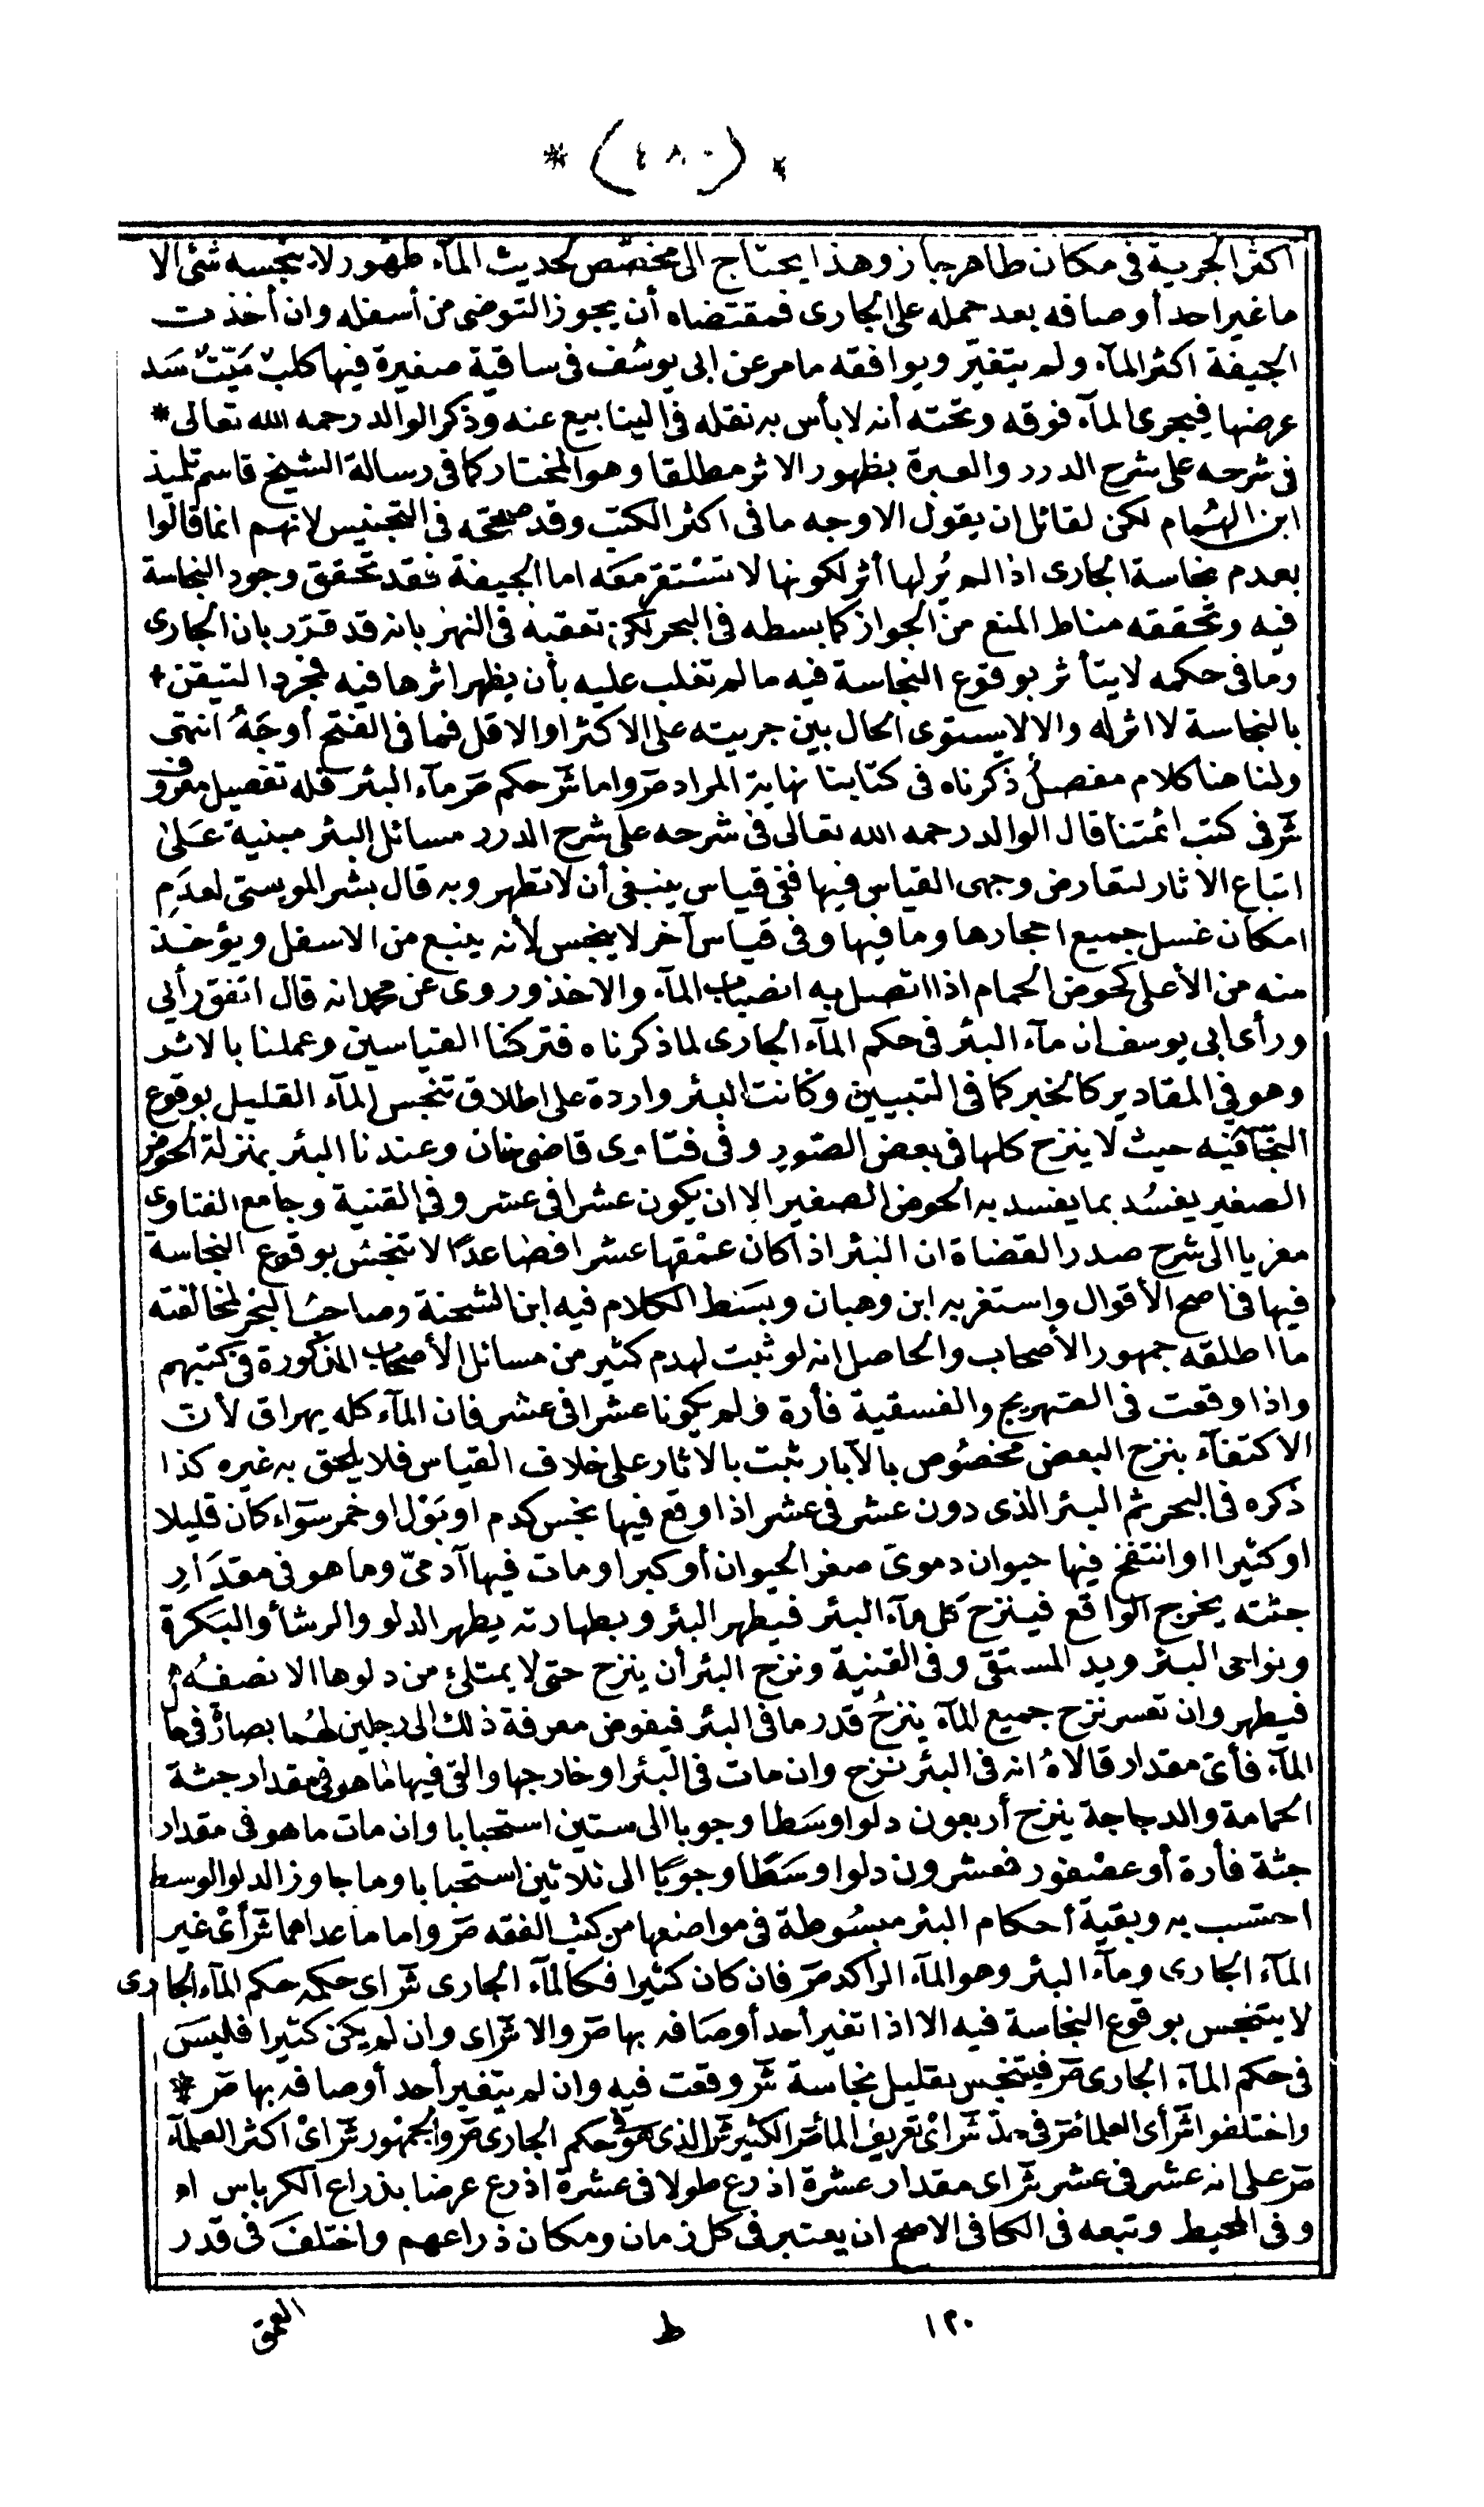 * (٤٨٠) *
اكثر الجرية فى مكان طاهر جاز وهذا يحتاج الى مخصص لحديث المآء طهور لا ينجسه شئ الا
ما غير احد أوصافه بعد حمله على الجارى فمقتضاه أن يجوز التوضى من أسفله وان أخذت
الجيفة اكثر المآء ولم يتغير ويوافقه ما مر عن ابى يوسف فى ساقية صغيرة فيها كلب ميّت سَد
عرضها فيجرى المآء فوقه وتحته أنه لا بأس به نقله فى الينابيع عنه وذكر الوالد رحمه الله تعالى *
فى شرحه على شرح الدرر والعبرة بظهور الاثر مطلقا وهو المختار كما فى رسالة الشيخ قاسم تلميذ
ابن الهُمام لكن لقائل ان يقول الاوجه ما فى اكثر الكتب وقد صححه فى التجنيس لانهم انما قالوا
بعدم نجاسة الجارى اذا لم يُر لها أثر لكونها لا تستقر معَه اما الجيفة فقد تحقق وجود النجاسة
فيه وتحققه مناط المنع من الجواز كما بسطه فى البحر لكن تعقبه فى النهر بانه قد قرّر بان الجارى
وما فى حكمه لا يتأثر بوقوع النجاسة فيه ما لم تغلب عليه بأن يظهر اثرها فيه فمجرد التيقن +
بالنجاسة لا اثر له والا لا يستوى الحال بين جريته على الاكثر او الاقل فما فى الفتح أوجَهُ انتهى
ولنا هنا كلام مفصلُ ذكرناه فى كتابنا نهاية المراد صَر واما شَر حكم صَر مآء البئر فله تفصيل معروف
شَر فى كتب ائمتنا قال الوالد رحمه الله تعالى فى شرحه على شرح الدرر مسائل البئر مبنية عَلىٰ
اتباع الاثار لتعارض وجهى القياس فيها ففى قياس ينبغى أن لا تطهر وبه قال بشر المريسى لعدَمِ
امكان غسل جميع احجارها وما فيها وفى قياس آخر لا ينجس لأنه ينبع من الاسفل ويؤخذ
منه من الأعلى كحوض الحمام اذا اتصل به انصباب المآء والاخذ وروى عن محمد انه قال اتفق رأيى
ورأى ابى يوسف ان مآء البئر فى حكم المآء الجارى لما ذكرناه فتركنا القياسين وعملنا بالاثر
وهو فى المقادير كالخبر كما فى التبيين وكانت البئر واردة على اطلاق تنجس المآء القليل بوقوع
النجَاسة فيه حيث لا ينزح كلها فى بعض الصّور وفى فتاوى قاضى خان وعندنا البئر بمنزلة الحوض
الصغير يفسُد بما يفسد به الحوض الصغير الا ان يكون عشرا فى عشر وفى القنية وجامع الفتاوى
معزيا الى شرح صدر القضاة ان البئر اذا كان عمْقها عشرا فصاعدًا لا تنجسُ بوقوع النجاسة
فيها فى اصح الأقوال واستغربه ابن وهبان وبسَط الكلام فيه ابن الشحنة وصاحبُ البحر لمخالفته
ما اطلقه جمهور الأصحاب والحاصل انه لو ثبت لهدم كثير من مسائل الأصحاب المذكورة فى كتبهم
واذا وقعت فى الصهريج والفسقية فأرة ولم يكونا عشرا فى عشر فان المآء كله يهراق لأن
الاكتفآء بنزح البعض مخصُوص بالآبار ثبت بالاثار على خلاف القياس فلا يلحق به غيره كذا
ذكره فى البحر ثم البئر الذى دون عشر فى عشر اذا وقع فيها نجس كدم او بَوْل او خمر سوَاء كان قليلا
او كثيرا او انتفخ فيها حيوان دموى صغر الحيوان أو كبر او مات فيها آدمىّ وما هو فى مقدَارِ
جثته يخرج الواقع فينزح كل مآء البئر فيطهر البئر وبطهارته يطهر الدلو والرشأ والبَكرة
ونواحى البئر ويد المستقى وفى القنية ونزح البئر أن ينزح حتى لا يمتلئ من دلوها الا نصفهُ
فيطهر وان تعسر نزح جميع المآء ينزحُ قدر ما فى البئر فيفوض معرفة ذلك الى رجلين لهُما بصارة فى حال
المآء فأىّ مقدار قالاهُ انه فى البئر نزح وان مات فى البئر او خارجها والقى فيها ما هو فى مقدار جثة
الحمامة والدجاجة ينزح أربعون دلوا وسَطا وجوبا الى ستين استحبابا وان مات ما هو فى مقدار
جثة فأرة أو عصْفور فعشرون دلوا وسَطًا وجوبًا الى ثلاثين استحبابا وما جاوز الدلو الوسط
احتسب به وبقية أحكام البئر مبسُوطة فى مواضعها من كتب الفقه صَر واما ما عداهما شَر أىْ غير
المآء الجارى ومآء البئر وهو المآء الراكد صَر فان كان كثيرا فكالمآء الجارى شَر اى حكمه حكم المآء الجارى
لا يتنجس بوقوع النجاسة فيه الا اذا تغير أحد أوصَافه بها صَر والا شَر اى وان لم يكن كثيرا فليسَ
فى حكم المآء الجارى صَر فيتنجس بقليل نجاسة شَر وقعت فيه وان لم يتغير أحد أوصافه بها صَر *
واختلفوا شَر أى العلمآء صَر فى حدّ شَر اىْ تعريف المآء صَر الكثير شَر الذى هو فى حكم الجارى صَر والجمْهور شَر اىْ اكثر العلمآء
صَر على انه عشر فى عشر شَر اى مقدار عشرة اذرع طولا فى عشرة اذرع عرضا بذراع الكرباس او
وفى المحيط وتبعه فى الكافى الاصح ان يعتبر فى كل زمان ومكان ذراعهم واختلفَ فى قدر
١٢٠ ط العمق